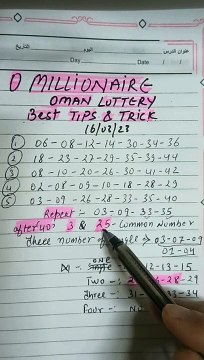 عنوان الدرس اليوم التاريخ
Day Date / /
O MILLIONAIRE
OMAN LOTTERY
Best TIPS & TRICK
16/03/23
1 06-08-12-14-30-34-36
2 18-23-27-29-35-39-44
3 08-10-20-26-30-41-44
4 02-08-09-10-18-28-29
5 03-09-26-28-33-35-40
Repeet :- 03-09-33-35
3 & 25- Common Number
these number of
03-07-09
01-04
ONE
12-13-15
Two = -28-29
Three = 31- 33-34
Four =